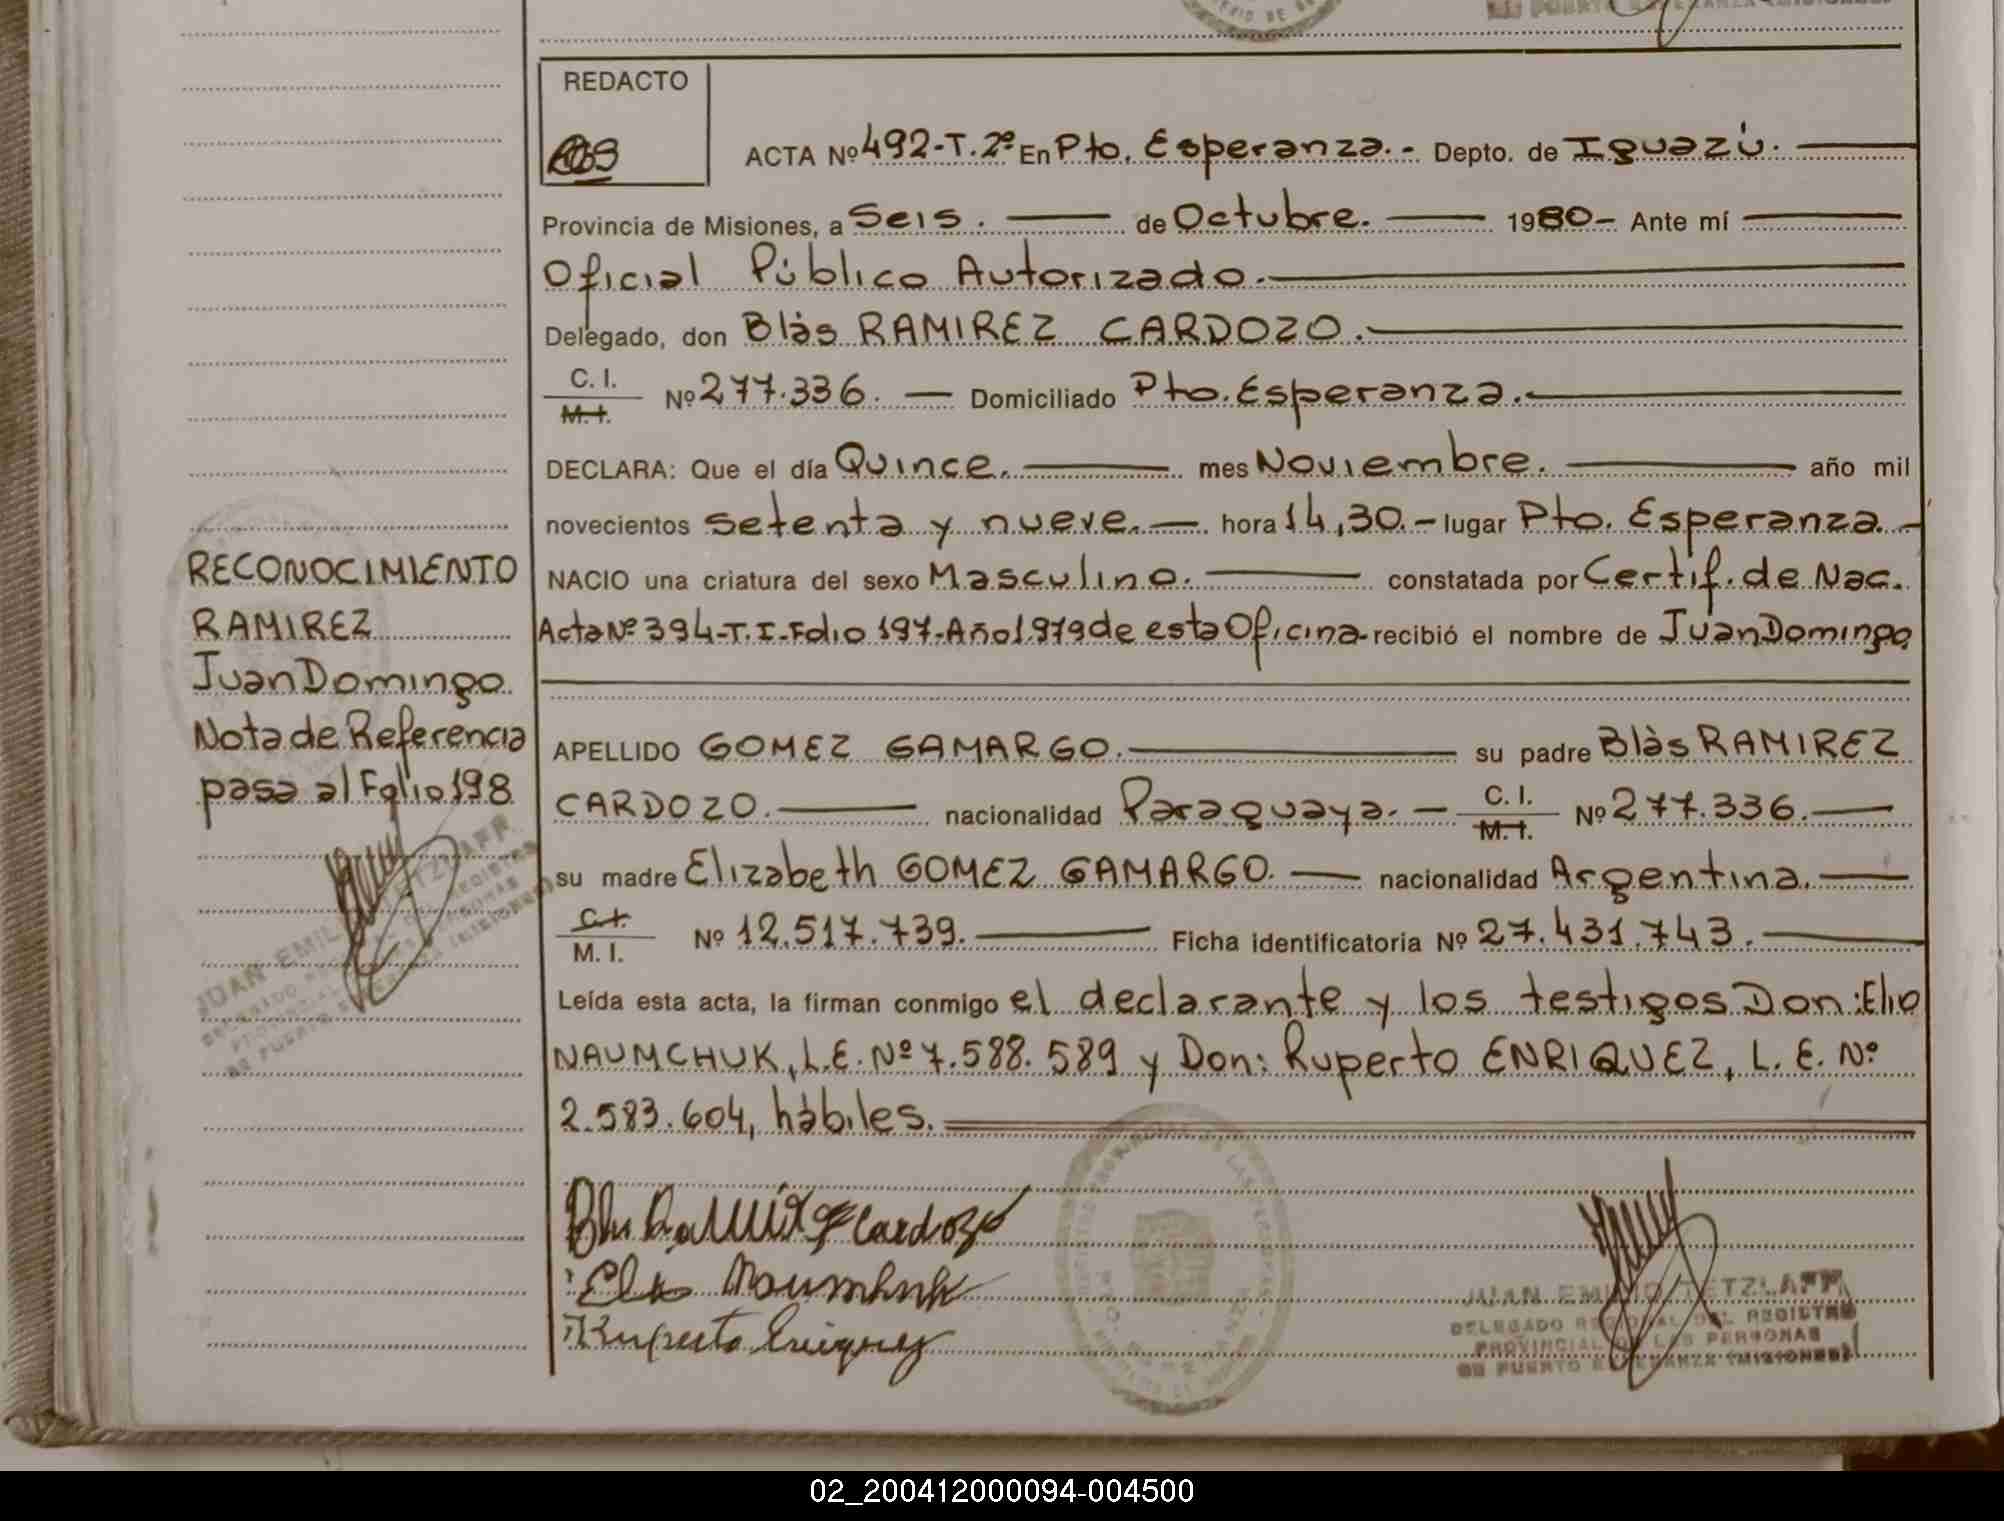 REDACTO
ACTA Nº 492-T.2º En Pto. Esperanza.- Depto. de Iguazú.
Provincia de Misiones, a Seis. de Octubre. 1980- Ante mí
Oficial Público Autorizado.
Delegado, don Blàs RAMIREZ CARDOZO.
C. I.
M. I. Nº 277.336. Domiciliado Pto. Esperanza.
DECLARA: Que el día Quince. mes Noviembre. año mil
novecientos setenta y nueve. hora 14,30.- lugar Pto. Esperanza.-
NACIO una criatura del sexo Masculino. constatada por Certif. de Nac.
Acta Nº 394-T.I-Folio 197-Año 1.979 de esta Oficina- recibió el nombre de Juan Domingo
APELLIDO GOMEZ GAMARGO. su padre Blàs RAMIREZ
CARDOZO. nacionalidad Paraguaya.- C. I.
M. I. Nº 277.336.
su madre Elizabeth GOMEZ GAMARGO. nacionalidad Argentina.
C. I.
M. I. Nº 12.517.739. Ficha identificatoria Nº 27.431.743.
Leída esta acta, la firman conmigo el declarante y los testigos Don: Elio
NAUMCHUK, L.E. Nº 7.588.589 y Don: Ruperto ENRIQUEZ, L. E. Nº
2.583.604, hàbiles.
RECONOCIMIENTO
RAMIREZ
Juan Domingo
Nota de Referencia
pasa al Folio 198
JUAN EMILIO TETZLAFF
Ramirez Cardozo
Ruperto Enriquez
JUAN EMILIO TETZLAFF
DELEGADO REGIONAL DEL REGISTRO
PROVINCIAL DE LAS PERSONAS
DE PUERTO ESPERANZA (MISIONES)
02_200412000094-004500